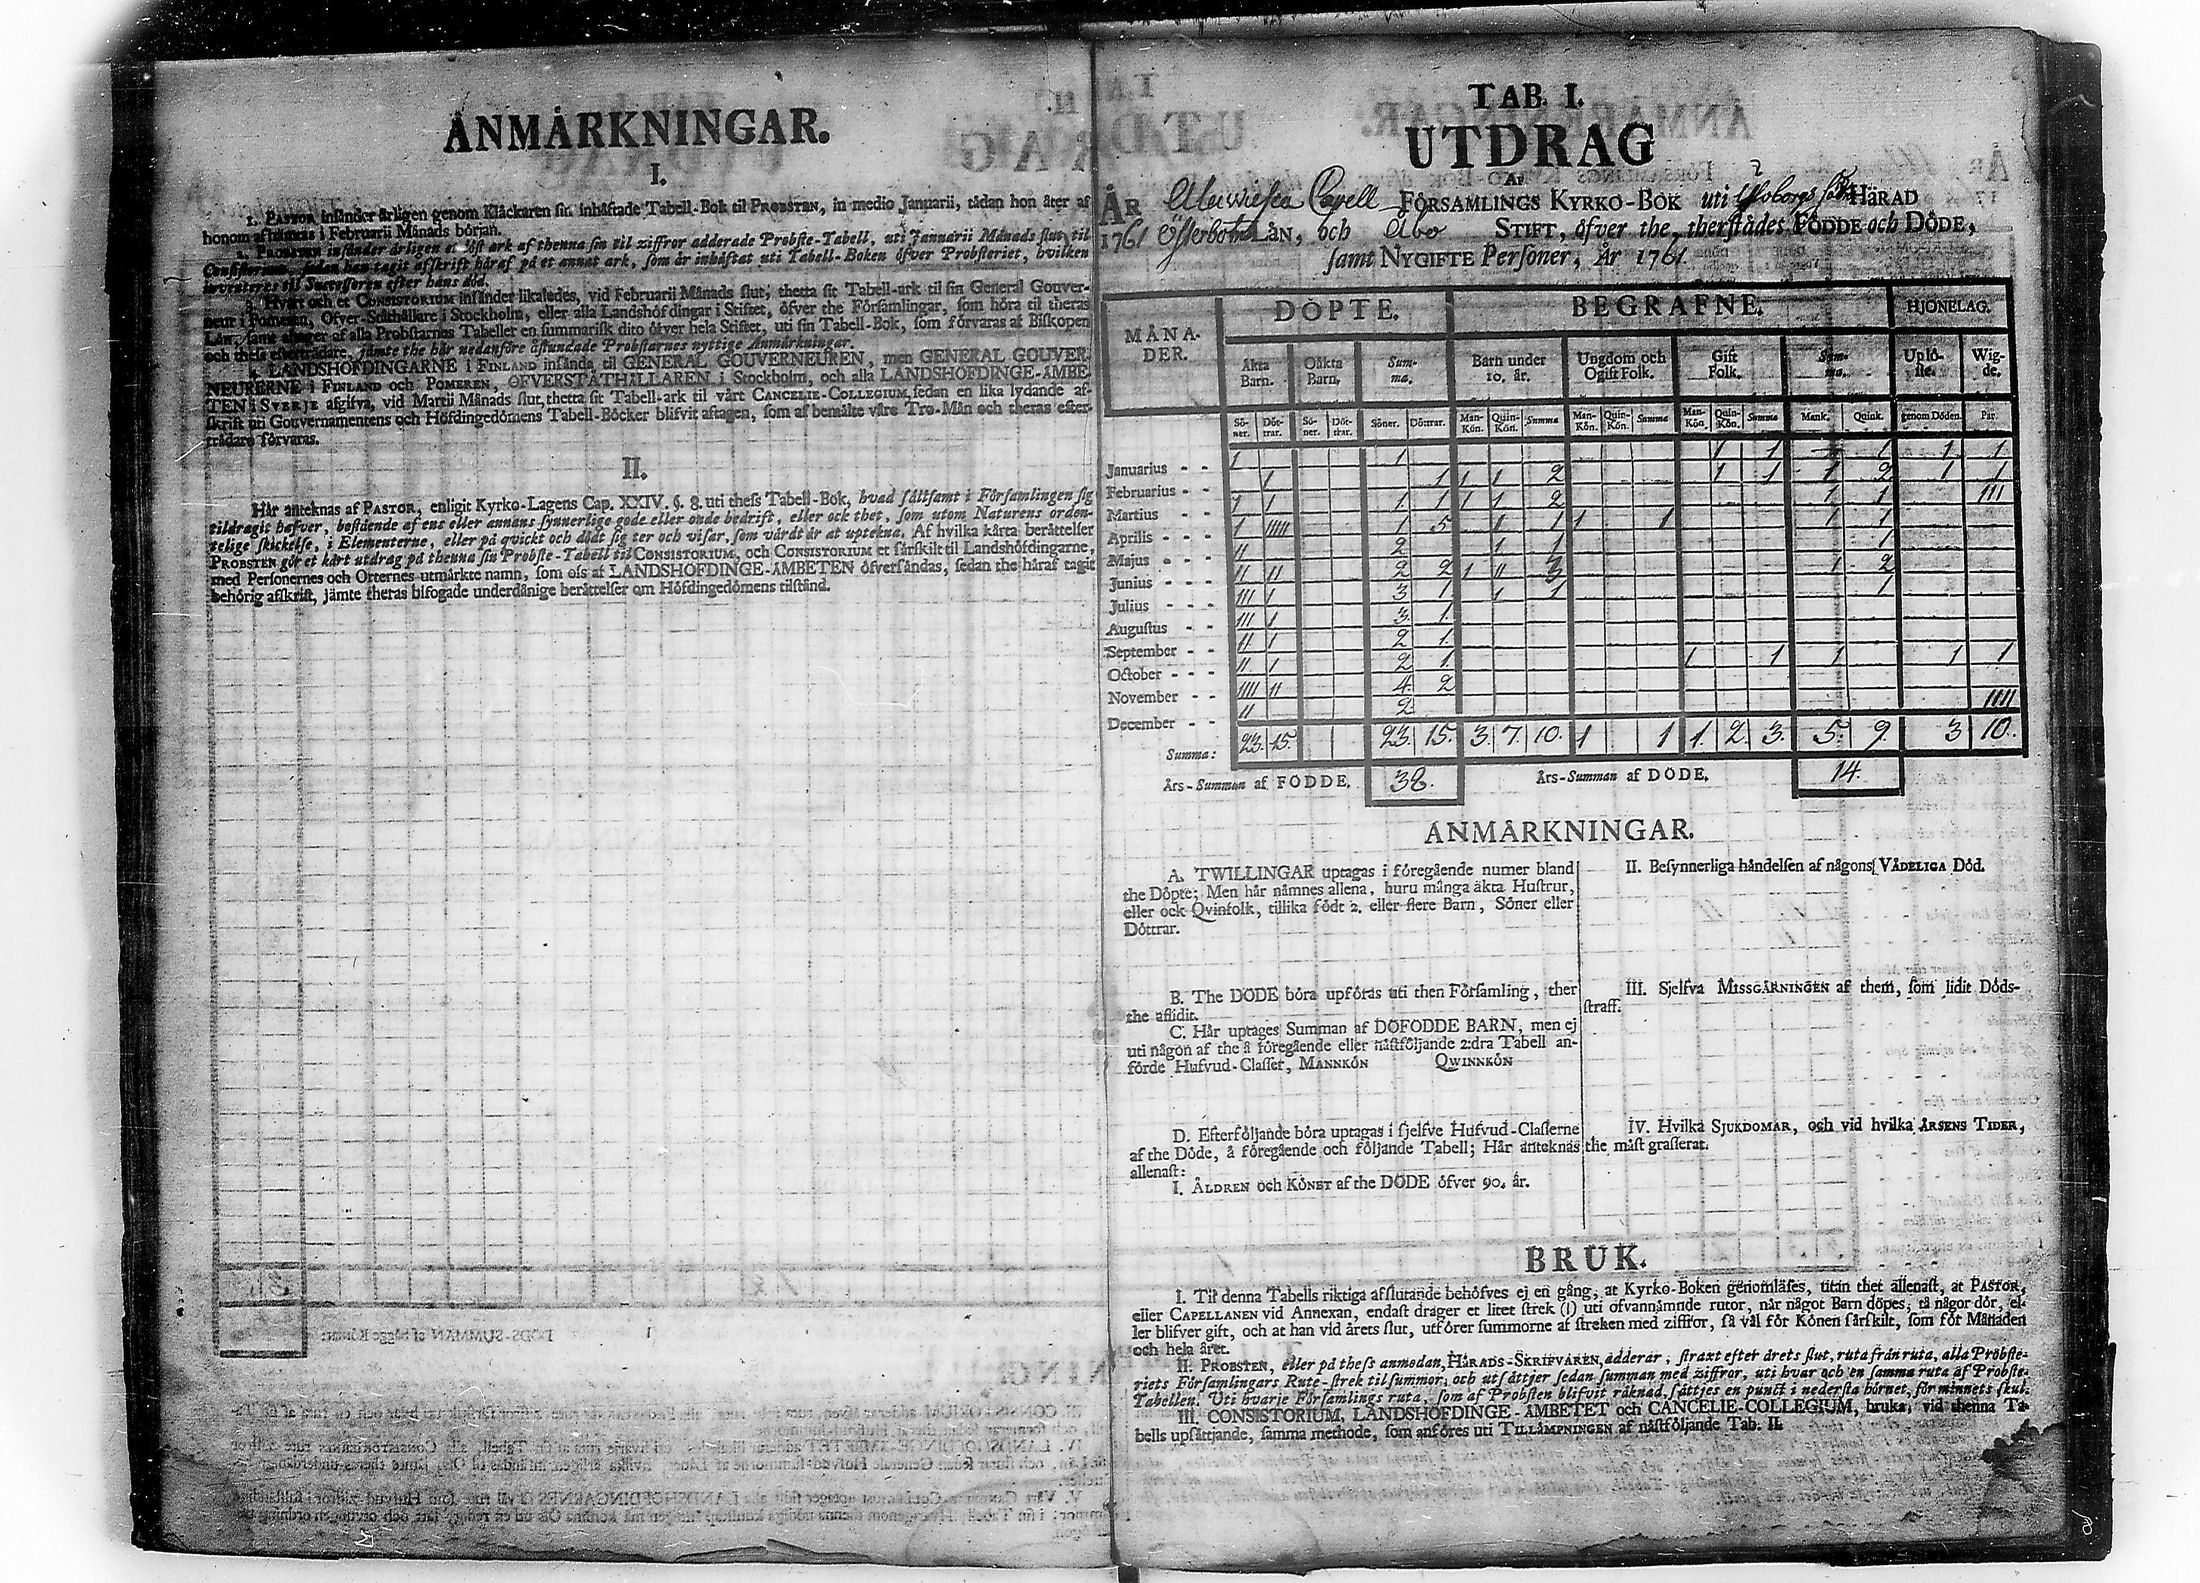 ANMÄRKNINGAR.
I.
1. PASTOR insänder årligen genom Klåckaren sin inhäftade Tabell-Bok til PROBSTEN, in medio Januarii, tädan hon åter af
honom afhämtas i Februarii Månads början.
2. PROBSTEN insänder årligen et löst ark af thenna sin til ziffror adderade Probste-Tabell, uti Januarii Månads slut, til
Consistorium, sedan han tagit afskrift häraf på et annat ark, som är inhäftat uti Tabell-Boken öfver Probsteriet, hvilken
inventeres til Successoren efter hans död.
3. Hvart och et CONSISTORIUM insänder likaledes, vid Februarii Månads slut, thetta sit Tabell-ark til sin General Gouver-
neur i Pomeren, Öfver-Ståthållare i Stockholm, eller alla Landshöfdingar i Stiftet, öfver the Församlingar, som höra til theras
Län, samt aflager of alla Probstarnes Tabeller en summarisk dito öfver hela Stiftet, uti sin Tabell-Bok, som förvaras af Biskopen
och thess efterträdare, jämte the här nedanföre åstundade Probstarnes nyttige Anmärkningar.
4. LANDSHÖFDINGARNE i FINLAND insända til GENERAL GOUVERNEUREN, men GENERAL GOUVER-
NEURERNE i FINLAND och POMEREN, ÖFVERSTÅTHÅLLAREN i Stockholm, och alla LANDSHÖFDINGE-ÄMBE-
TEN i SVERJE afgifva, vid Martii Månads slut, thetta sit Tabell-ark til vårt CANCELIE-COLLEGIUM, sedan en lika lydande af-
skrift uti Gouvernamentens och Höfdingedömens Tabell-Böcker blifvit aftagen, som af bemälte våre Tro-Män och theras efter-
trädare förvaras.
II.
Här anteknas af PASTOR, enligit Kyrko-Lagens Cap. XXIV. §. 8. uti thess Tabell-Bok, hvad sältsamt i Församlingen sig
tildragit hafver, bestående af ens eller annans synnerlige gode eller onde bedrift, eller ock thet, som utom Naturens orden-
telige skickelse, i Elementerne, eller på qvickt och dödt sig ter och visar, som värdt är at uptekna. Af hvilka kårta berättelser
PROBSTEN gör et kårt utdrag på thenna sin Probste-Tabell til CONSISTORIUM, och CONSISTORIUM et särskilt til Landshöfdingarne,
med Personernes och Orternes utmärkte namn, som ofs af LANDSHÖFDINGE-ÄMBETEN öfversändas, sedan the häraf tagit
behörig afskrift, jämte theras bifogade underdånige berättelser om Höfdingedömens tilstånd.
TAB. I.
UTDRAG
AF
ÅR Capell FÖRSAMLINGS KYRKO-BOK uti HÄRAD
1761 Österbotns LÄN, och Åbo STIFT, öfver the, therstädes FÖDDE och DÖDE,
samt NYGIFTE Personer, År 1761.
MÅNA-DER. DÖPTE. BEGRAFNE. HJONELAG.
Äkta Barn. Oäkta Barn. Summa. Barn under 10. år. Ungdom och Ogift Folk. Gift Folk. Summa. Uplöste. Wigde.
Söner. Döttrar. Söner. Döttrar. Söner. Döttrar. Man-Kön. Quin-Kön. Summa Man-Kön. Quin-Kön. Summa Man-Kön. Quin-Kön. Summa Mank. Quink. genom Döden. Par.
Januarius - - 1 1 1 1 1 1 1
Februarius - - 1 1 1 1 2 1 1 1 2 1 1
Martius - - 1 1 1 1 1 1 2 1 1 III
Aprilis - - 1 IIIII 1 5 1 1 1 1 1 1
Majus - - II 2 1 1 1
Junius - - II II 2 2 1 II 3 1 2
Julius - - III 1 3 1 1 1 1
Augustus - - III 1 3. 1.
September - - II 1 2 1.
October - - - II 1 2 1. 1 1 1 1 1
November - - IIII II 4. 2
December - - II 2 IIII
Summa: 23. 15. 23. 15. 3. 7. 10. 1 1 1. 2. 3. 5. 9. 3 10.
Års-Summan af FÖDDE. 38. Års-Summan af DÖDE. 14.
ANMÄRKNINGAR.
A. TWILLINGAR uptagas i föregående numer bland
the Döpte; Men här nämnes allena, huru många äkta Hustrur,
eller ock Qvinfolk, tillika födt 2. eller flere Barn, Söner eller
Döttrar.
B. The DÖDE böra upföras uti then Församling, ther
the aflidit.
C. Här uptages Summan af DÖFÖDDE BARN, men ej
uti någon af the å föregående eller nästföljande 2:dra Tabell an-
förde Hufvud-Classer, MANNKÖN QWINNKÖN
D. Efterföljande böra uptagas i sjelfve Hufvud-Classerne
af the Döde, å föregående och följande Tabell; Här anteknas
allenast:
I. ÅLDREN och KÖNET af the DÖDE öfver 90. år.
II. Besynnerliga händelsen af någons VÅDELIGA Död.
III. Sjelfva MISSGÄRNINGEN af them, som lidit Döds-
straff.
IV. Hvilka SJUKDOMAR, och vid hvilka ÅRSENS TIDER,
the mäst grasserat.
BRUK.
I. Til denna Tabells riktiga afslutande behöfves ej en gång, at Kyrko-Boken genomläses, utan thet allenast, at PASTOR,
eller CAPELLANEN vid Annexan, endast drager et litet strek (I) uti ofvannämnde rutor, när något Barn döpes, tå någor dör, el-
ler blifver gift, och at han vid årets slut, utförer summorne af streken med ziffror, så väl för Könen särskilt, som för Månaden
och hela året.
II. PROBSTEN, eller på thess anmodan, HÄRADS-SKRIFVAREN, adderar, straxt efter årets slut, ruta från ruta, alla Probste-
riets Församlingars Rute-strek til summor, och utsättjer sedan summan med ziffror, uti hvar och en samma ruta af Probste-
Tabellen. Uti hvarje Församlings ruta, som af Probsten blifvit räknad, sättjes en punct i nedersta hörnet, för minnets skul.
III. CONSISTORIUM, LANDSHÖFDINGE-ÄMBETET och CANCELIE-COLLEGIUM, bruka, vid thenna Ta-
bells upsättjande, samma methode, som anföres uti TILLÄMPNINGEN af nästföljande Tab. II.